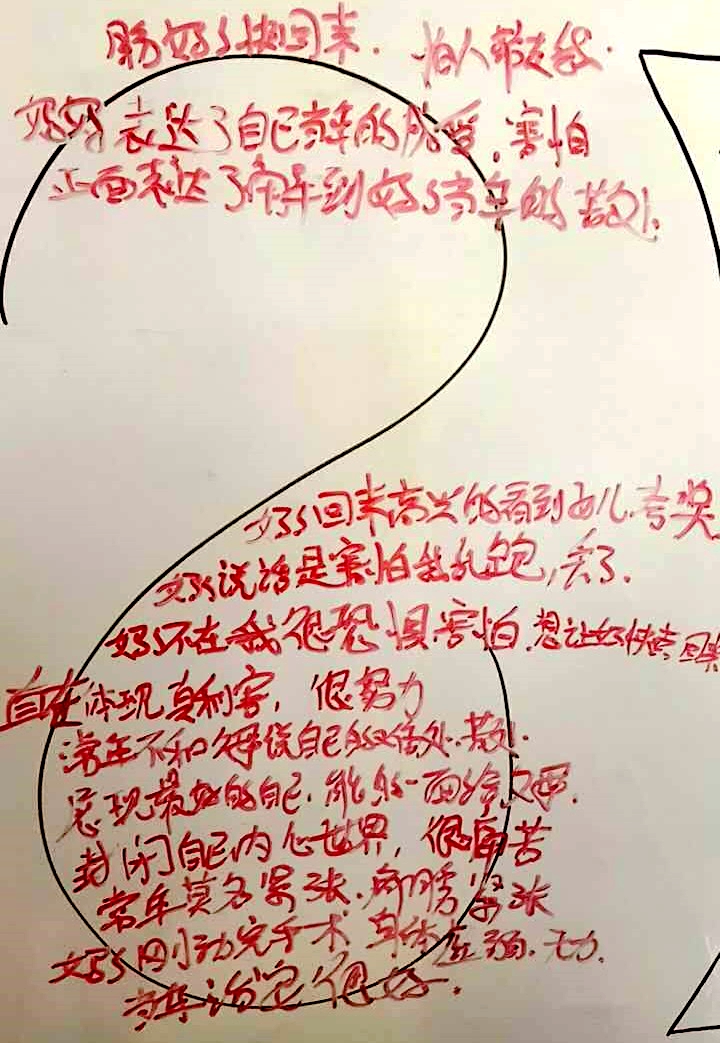 盼妈妈快回来. 怕人带走我.
妈妈表达了自己当年的感受,害怕
正面表达了当年到妈妈当年的苦处.
妈妈回来高兴的看到女儿.夸奖
妈妈说话是害怕我乱跑,丢了.
妈妈不在我很恐惧害怕.想让妈快点回来
自在体现真利害,很努力
常年不和父母说自己的难处.苦处.
展现最好的自己.能的一面给父母.
封闭自己内心世界,很痛苦
常年莫名紧张.肩膀紧张
妈妈刚动完手术 身体虚弱.无力.
当年很好.